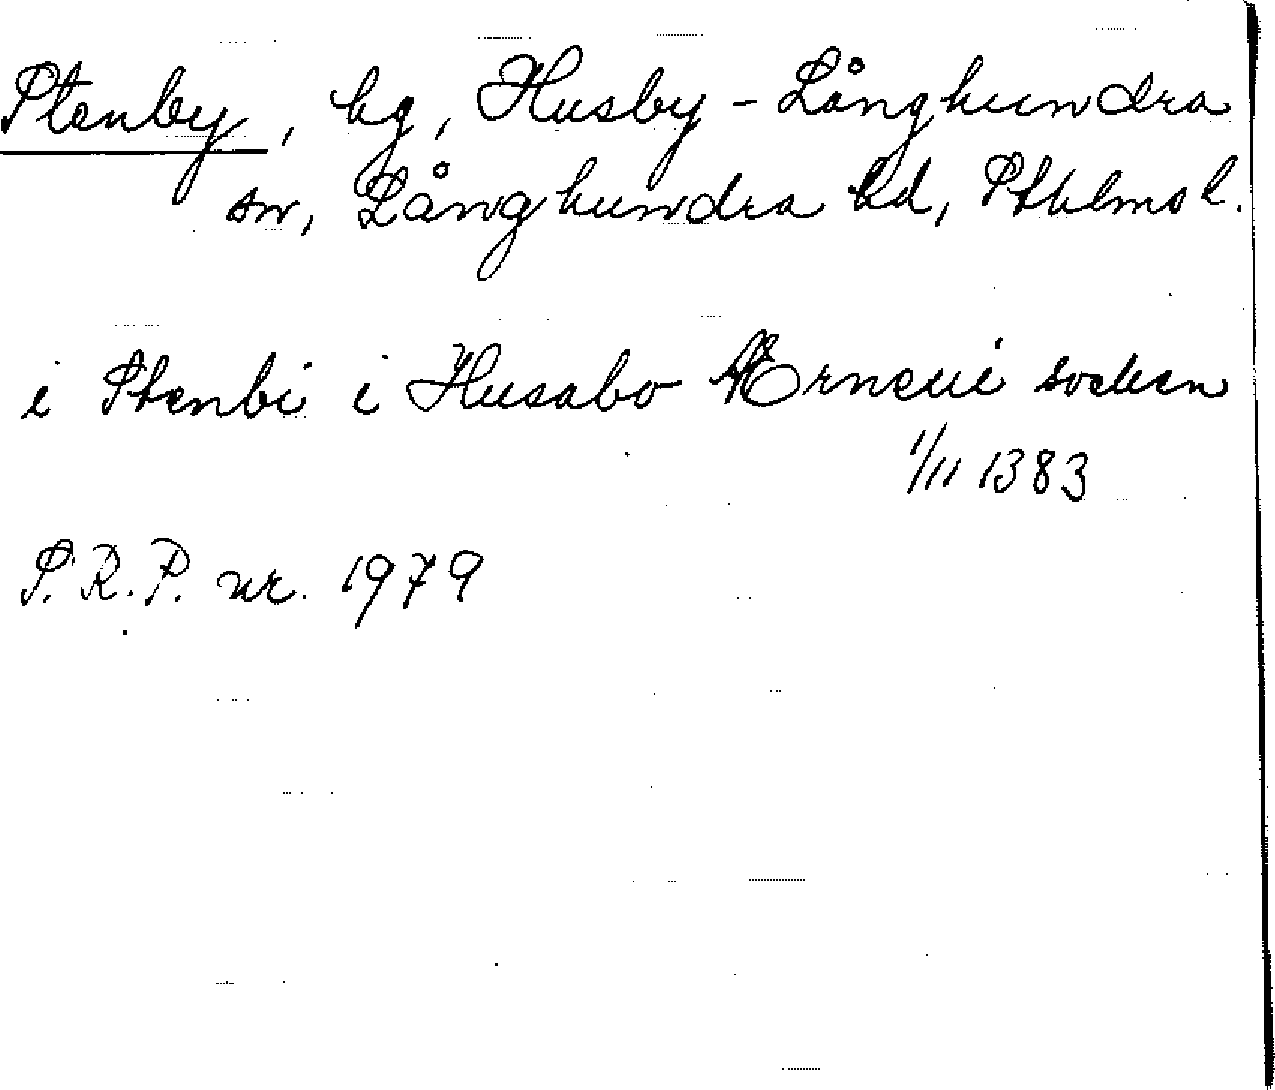 Stenby, by, Husby-Långhundra
sn, Långhundra hd, Sthlms l.
i Stenbi i Husabo Ærneui socken
1/11 1383
S.R.P. nr. 1979